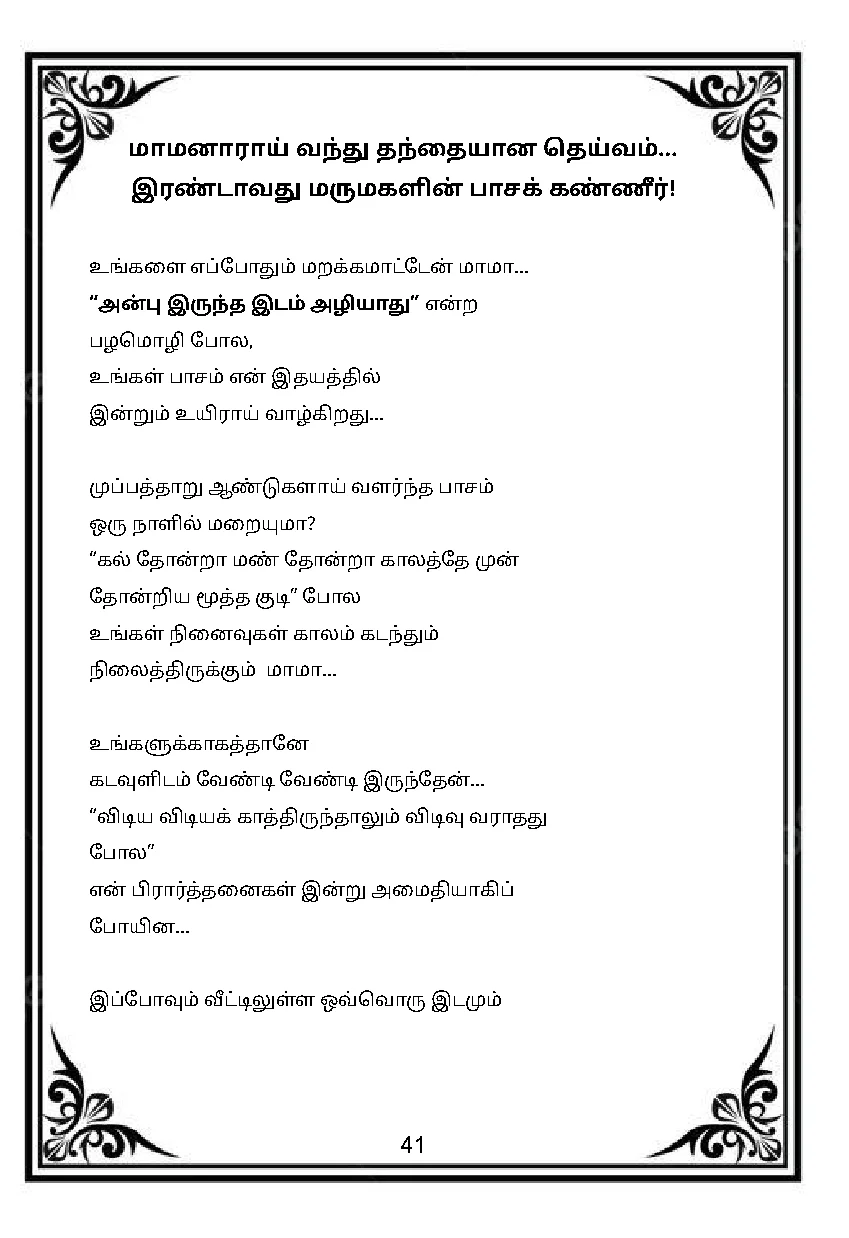 மாமனாராய் வந்து தந்தையான தெய்வம்...
இரண்டாவது மருமகளின் பாசக் கண்ணீர்!
உங்களை எப்போதும் மறக்கமாட்டேன் மாமா...
“அன்பு இருந்த இடம் அழியாது” என்ற
பழமொழி போல,
உங்கள் பாசம் என் இதயத்தில்
இன்றும் உயிராய் வாழ்கிறது...
முப்பத்தாறு ஆண்டுகளாய் வளர்ந்த பாசம்
ஒரு நாளில் மறையுமா?
“கல் தோன்றா மண் தோன்றா காலத்தே முன்
தோன்றிய மூத்த குடி” போல
உங்கள் நினைவுகள் காலம் கடந்தும்
நிலைத்திருக்கும் மாமா...
உங்களுக்காகத்தானே
கடவுளிடம் வேண்டி வேண்டி இருந்தேன்...
“விடிய விடியக் காத்திருந்தாலும் விடிவு வராதது
போல”
என் பிரார்த்தனைகள் இன்று அமைதியாகிப்
போயின...
இப்போவும் வீட்டிலுள்ள ஒவ்வொரு இடமும்
41